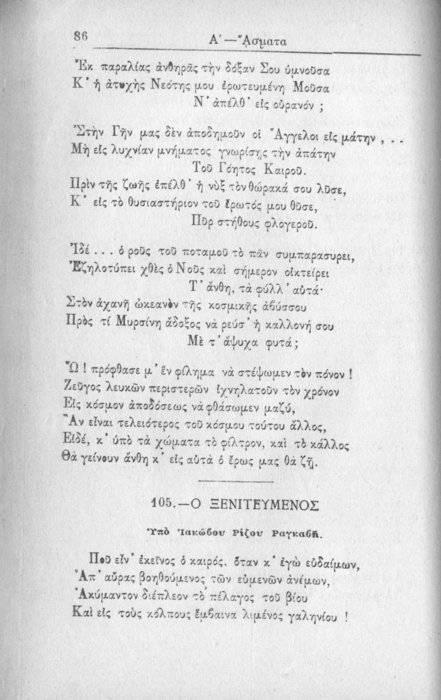 86
Α΄ — ᾌσματα
Ἐκ παραλίας ἀνθηρᾶς τὴν δόξαν Σου ὑμνοῦσα
Κ᾿ ἡ ἀτυχὴς Νεότης μου ἐρωτευμένη Μοῦσα
Ν᾿ ἀπέλθ᾿ εἰς οὐρανόν ;
Στὴν Γῆν μας δὲν ἀποδημοῦν οἱ Ἄγγελοι εἰς μάτην , . .
Μὴ εἰς λυχνίαν μνήματος γνωρίσῃς τὴν ἀπάτην
Τοῦ Γόητος Καιροῦ.
Πρὶν τῆς ζωῆς ἐπέλθ᾿ ἡ νὺξ τὸν θώρακά σου λῦσε,
Κ᾿ εἰς τὸ θυσιαστήριον τοῦ ἔρωτός μου θῦσε,
Πῦρ στήθους φλογεροῦ.
Ἰδέ . . . ὁ ροῦς τοῦ ποταμοῦ τὸ πᾶν συμπαρασυρει,
Ἐζηλοτύπει χθὲς ὁ Νοῦς καὶ σήμερον οἰκτείρει
Τ᾿ ἄνθη, τὰ φύλλ᾿ αὐτά·
Στὸν ἀχανῆ ὠκεανὸν τῆς κοσμικῆς ἀβύσσου
Πρὸς τί Μυρσίνη ἄδοξος νὰ ρεύσ᾿ ἡ καλλονή σου
Μὲ τ᾿ ἄψυχα φυτά ;
Ὢ ! πρόφθασε μ᾿ ἓν φίλημα νὰ στέψωμεν τὸν πόνον !
Ζεῦγος λευκῶν περιστερῶν ἰχνηλατοῦν τὸν χρόνον
Εἰς κόσμον ἀποδόσεως νὰ φθάσωμεν μαζύ,
Ἂν εἶναι τελειότερος τοῦ κόσμου τούτου ἄλλος,
Εἰδέ, κ᾿ ὑπὸ τὰ χώματα τὸ φίλτρον, καὶ τὸ κάλλος
Θὰ γείνουν ἄνθη κ᾿ εἰς αὐτὰ ὁ ἔρως μας θὰ ζῇ.
105. — Ο ΞΕΝΙΤΕΥΜΕΝΟΣ
Ὑπὸ Ἰακώβου Ρίζου Ραγκαβῆ.
Ποῦ εἶν᾿ ἐκεῖνος ὁ καιρός, ὅταν κ᾿ ἐγὼ εὐδαίμων,
Ἀπ᾿ αὔρας βοηθούμενος τῶν εὐμενῶν ἀνέμων,
Ἀκύμαντον διέπλεον τὸ πέλαγος τοῦ βίου
Καὶ εἰς τοὺς κόλπους ἔμβαινα λιμένος γαληνίου !